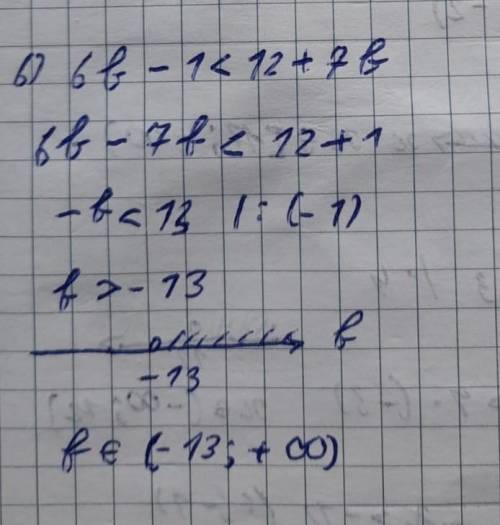 б) 6b - 1 < 12 + 7b
6b - 7b < 12 + 1
-b < 13 | : (-1)
b > -13
b
-13
b ∈ (-13; + ∞)